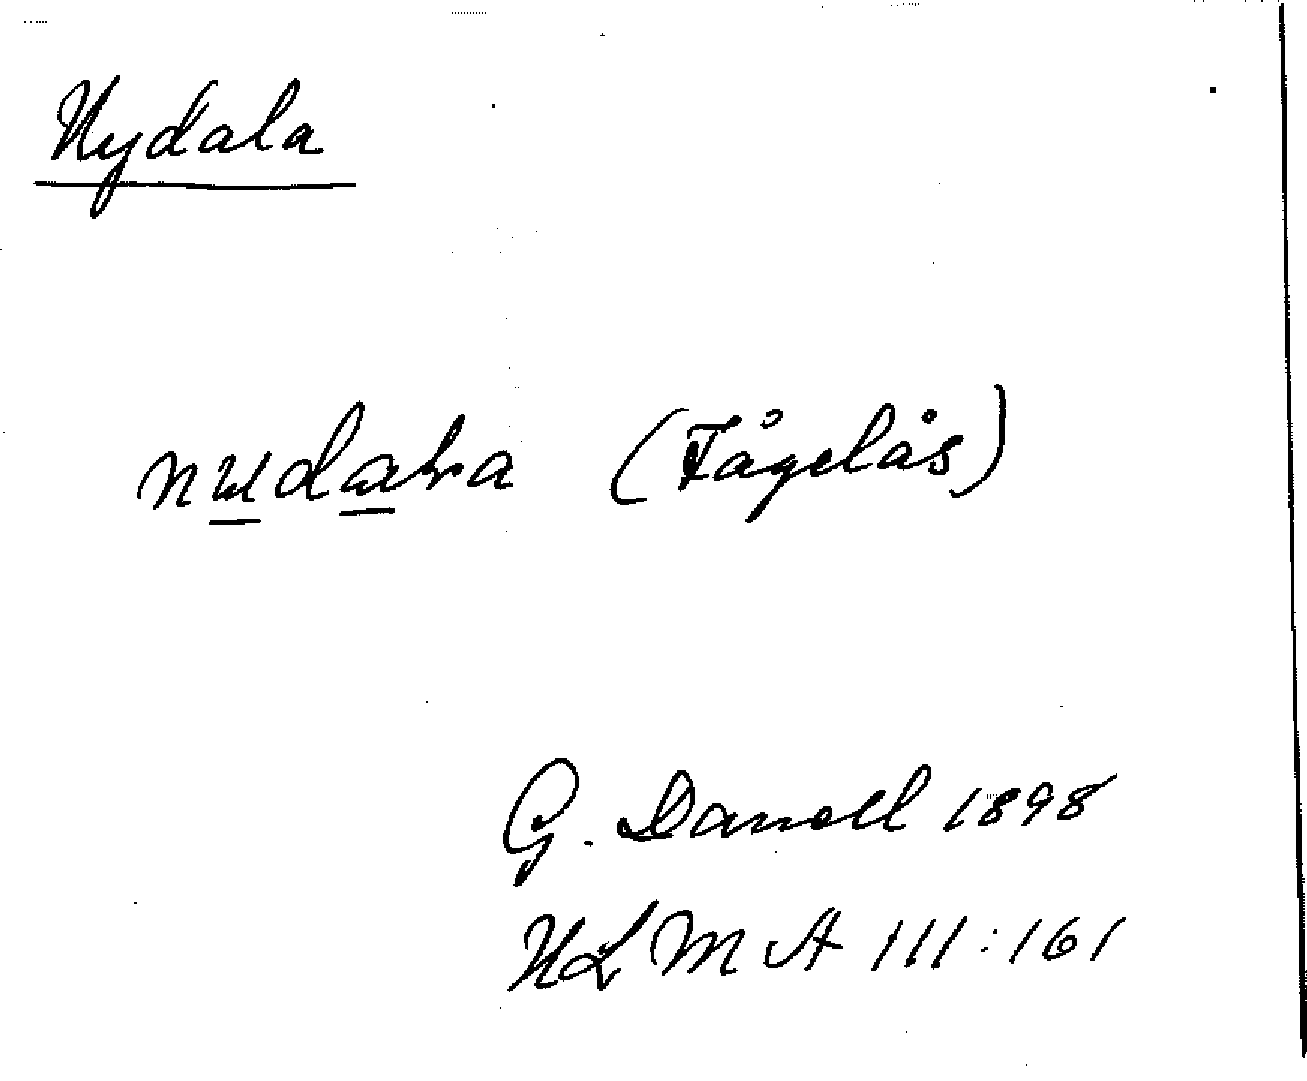 Nydala
(Fågelås)
G. Danell 1898
NLM A 111:161